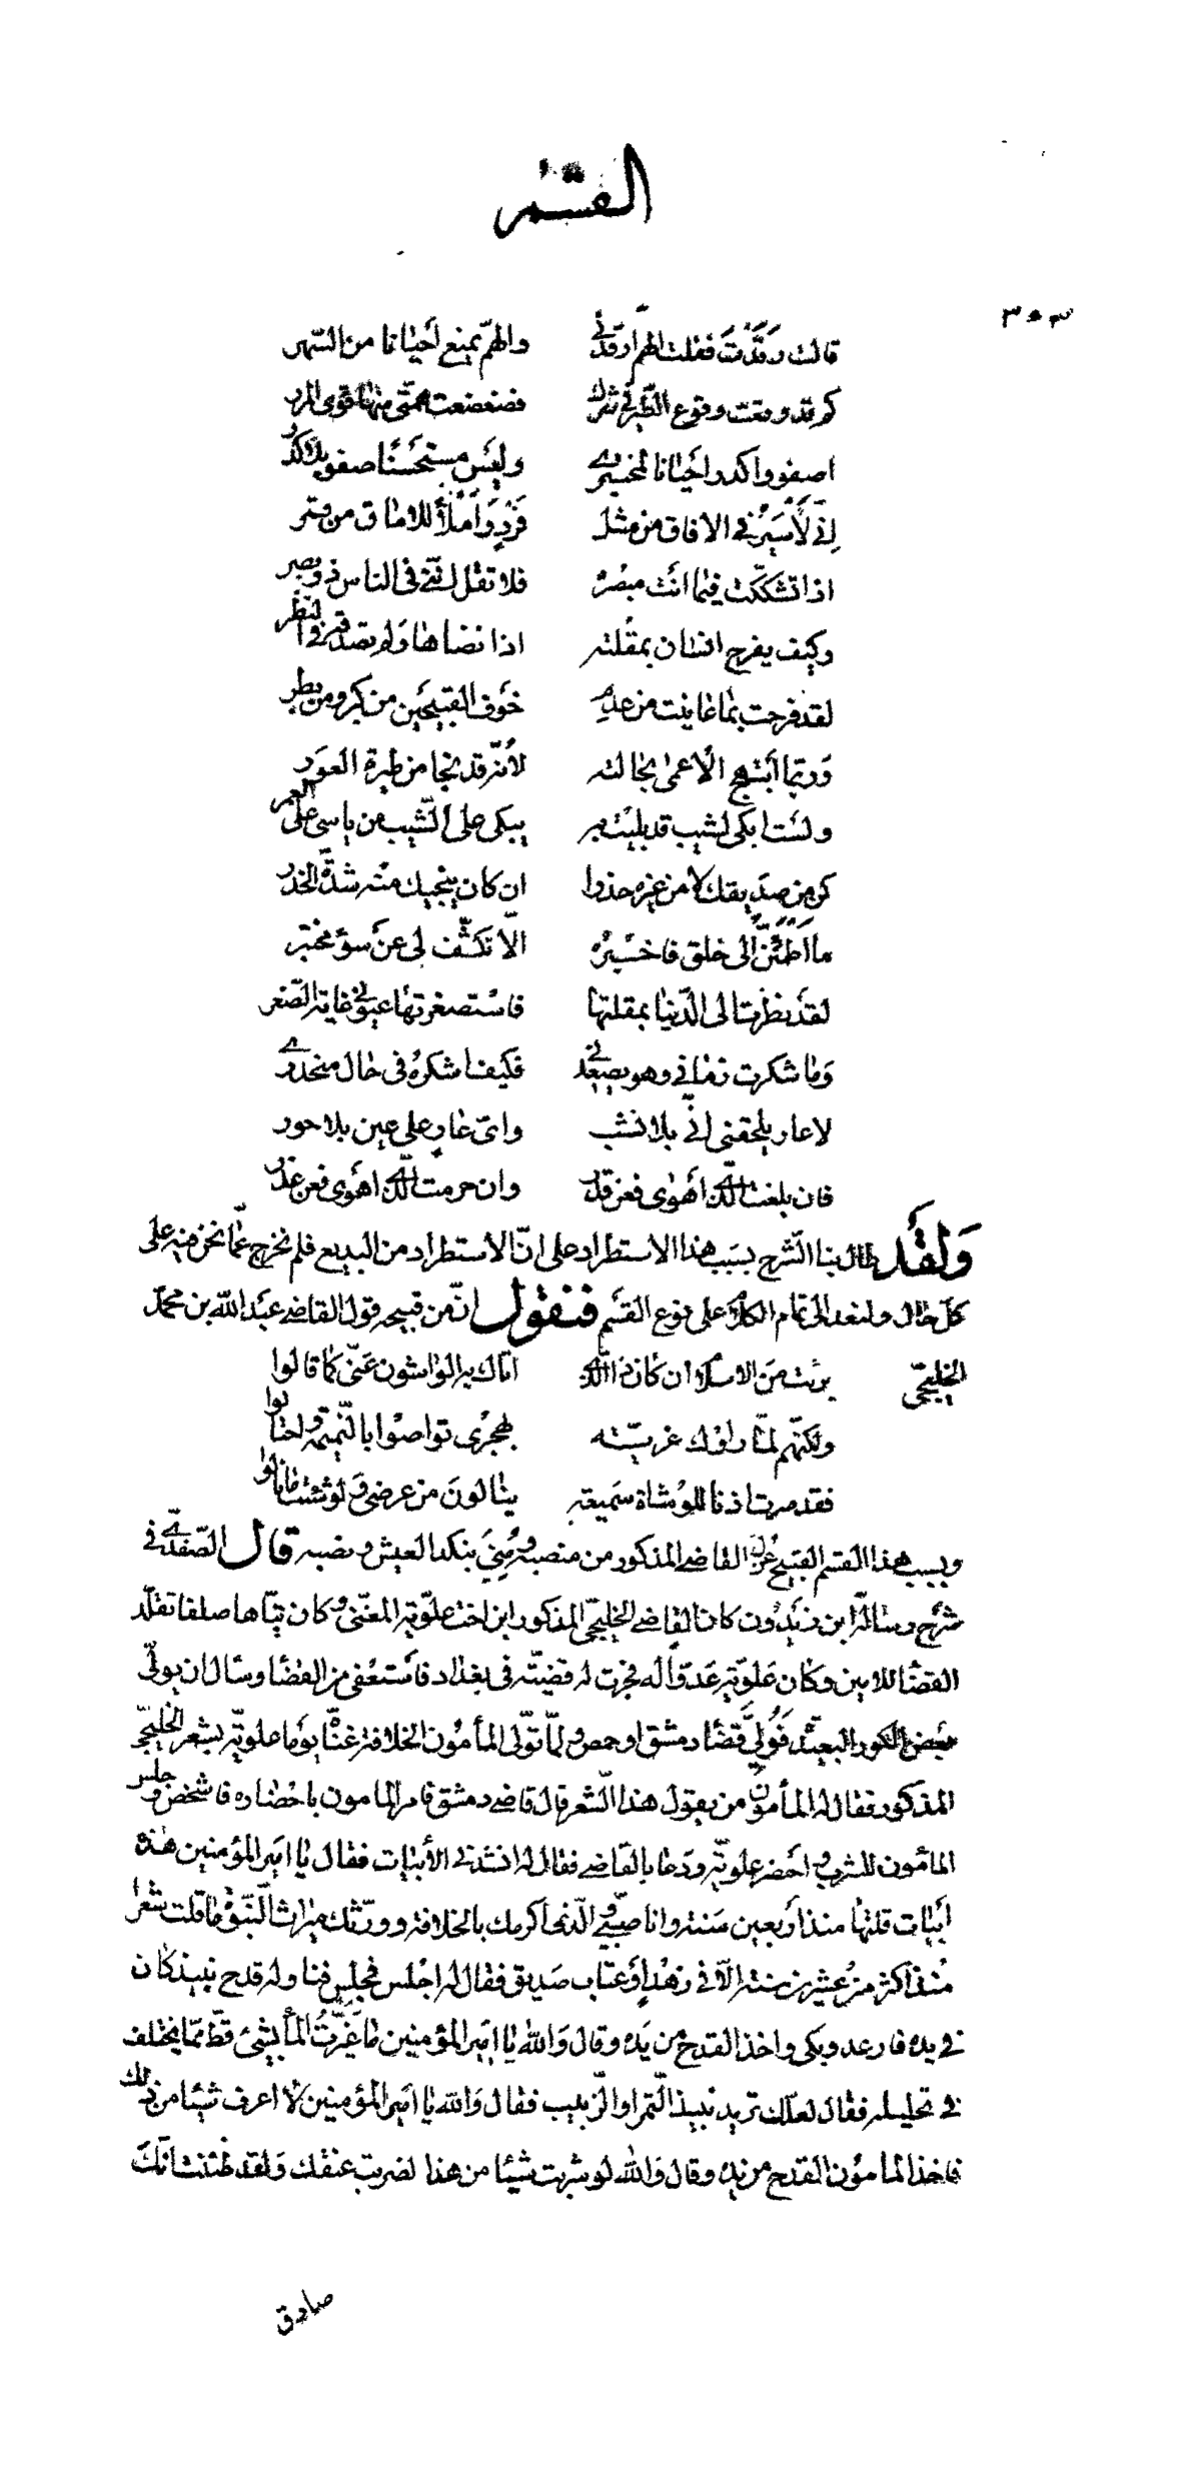 القسم
٣٠٣
قالت رقدت فقلت الهم ارقدني والهم يمنع أحيانا من السهر
كم قد وقعت وقوع الطير في شرك فضعضعت همتي منها قوى المرر
اصفو واكدر احيانا لمختبري وليس مستحسنا صفو بلا كدر
إني لأسير في الافاق من مثل فرد وأملأ للاماق من قمر
اذا تشككت فيما انت مبصره فلا تقل انني في الناس ذو بصر
وكيف يفرح انسان بمقلته اذا نضاها ولم تصدقه في النظر
لقد فرحت بما عاينت من عدم خوف القبيحين من كبر ومن بطر
وربما ابتهج الأعمى بحالته لأنه قد نجا من طيرة العور
ولست ابكي لشيب قد بليت به يبكي على الشيب من ياسى على العمر
كن من صديقك لا من غيره حذرا ان كان ينجيك منه شدة الحذر
ما اطمئن الى خلق فاخبره الا تكشف لي عن سوء مختبر
لقد نظرت الى الدنيا بمقلتها فاستصغرتها عيوني غاية الصغر
وما شكرت زماني وهو يصعدني فكيف اشكره في حال منحدري
لا عار يلحقني اني بلا نشب واي عار على عين بلا حور
فان بلغت الذي اهوى فعن قدر وان حرمت الذي اهوى فعن عذر
ولقد طال بنا الشرح بسبب هذا الاستطراد على ان الاستطراد من البديع فلم نخرج عما نحن فيه على
كل حال ولنعد الى تمام الكلام على نوع القسم فنقول ان من قبيحه قول القاضي عبد الله بن محمد
الخليجي برئت من الاسلام ان كان ذا الذي اتاك به الواشون عني كما قالوا
ولكنهم لما راوك غرية بهجري تواصوا بالنميمة واحتالوا
فقد صرت اذنا للوشاة سميعة ينالون من عرضي ولو شئت ما نالوا
وبسبب هذا القسم القبيح عزل القاضي المذكور من منصبه ورمي بنكد العيش ونصبه قال الصفدي في
شرح رسالة ابن زيدون كان القاضي الخليجي المذكور ابن اخت علوية المغني وكان تياها صلفا تقلد
القضا للامين وكان علوية عدوا له فجرت له قضية في بغداد فاستعفى من القضا وسال ان يولى
بعض الكور البعيدة فولي قضا دمشق او حمص ولما تولى المأمون الخلافة غناه يوما علوية بشعر الخليجي
المذكور فقال له المأمون من يقول هذا الشعر قال قاضي دمشق فامر المامون باحضاره فاشخص وجلس
المامون للشرب واحضر علوية ودعا بالقاضي فقال له انشدني الأبيات فقال يا امير المؤمنين هذه
أبيات قلتها منذ أربعين سنة وانا صبي والذي أكرمك بالخلافة وورثك ميراث النبوة ما قلت شعرا
منذ اكثر من عشرين سنة الا في زهد أو عتاب صديق فقال له اجلس فجلس فناوله قدح نبيذ كان
في يده فارعد وبكى واخذ القدح من يده وقال والله يا امير المؤمنين ما غيرت الماء بشيء قط مما يختلف
في تحليله فقال لعلك تريد نبيذ التمر او الزبيب فقال والله يا امير المؤمنين لا اعرف شيئا من ذلك
فاخذ المامون القدح من يده وقال والله لو شربت شيئا من هذا لضربت عنقك ولقد ظننت انك
صادق